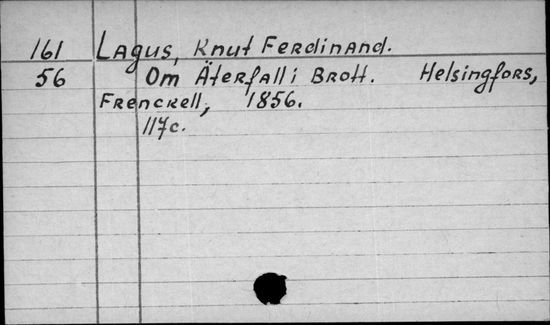 161 Lagus, Knut Ferdinand.
56 Om Äterfall i Brott. Helsingfors,
Frenckell, 1856.
117c.